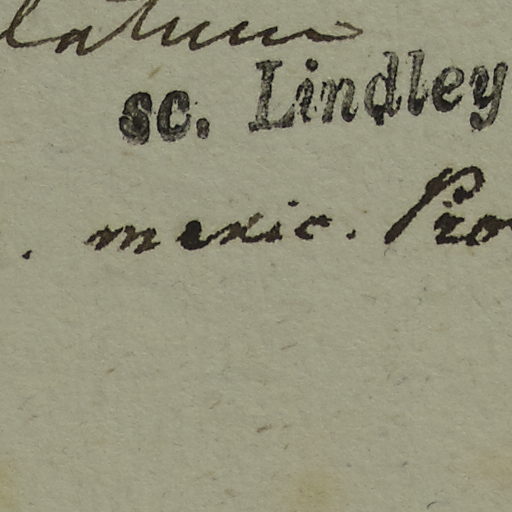 latum
sc. Lindley
. mexic. Pro